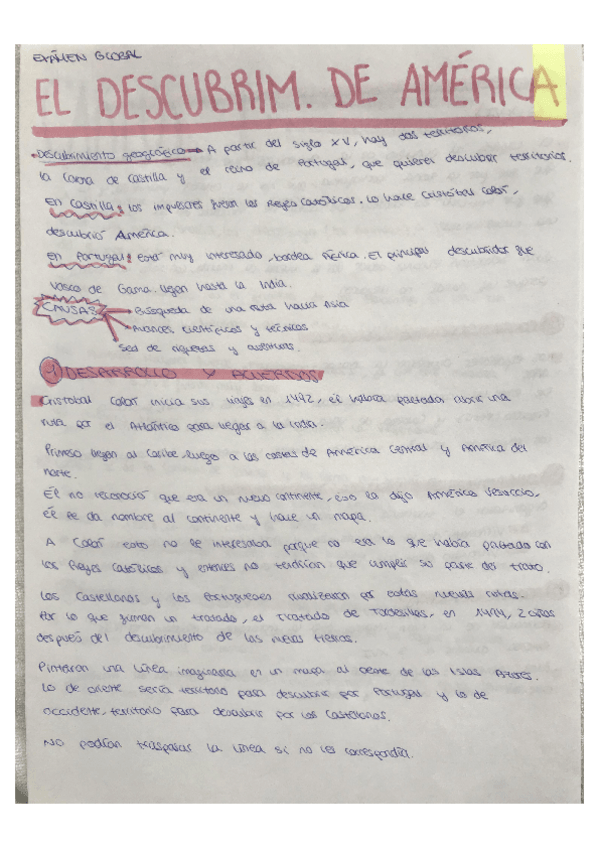 EXÁMEN GLOBAL
EL DESCUBRIM. DE AMÉRICA
Descubrimiento geográfico → A partir del siglo XV, hay dos territorios,
la Corona de Castilla y el reino de Portugal, que quieren descubrir territorios.
En Castilla: los impulsores fueron los Reyes Católicos. Lo hace Cristóbal Colón,
descubrió América.
En Portugal: está muy interesado, bordea África. El principal descubridor fue
Vasco de Gama. Llegan hasta la India.
CAUSAS → Búsqueda de una ruta hacia Asia
Avances científicos y técnicos
Sed de riquezas y aventuras.
1 DESARROLLO Y ACUERDOS
Cristóbal Colón inicia sus viajes en 1492, él había pactado abrir una
ruta por el Atlántico para llegar a la India.
Primero llegan al Caribe, luego a las costas de América Central y América del
norte.
Él no reconoció que era un nuevo continente, eso lo dijo Américo Vespuccio,
él le da nombre al continente y hace un mapa.
A Colón esto no le interesaba porque no era lo que había pactado con
los Reyes Católicos y entonces no tendrían que cumplir su parte del trato.
Los Castellanos y los Portugueses rivalizaron por estas nuevas rutas.
Por lo que firman un tratado, el Tratado de Tordesillas, en 1494, 2 años
después del descubrimiento de las nuevas tierras.
Pintaron una línea imaginaria en un mapa al oeste de las Islas Azores.
Lo de oriente sería territorio para descubrir por Portugal y lo de
occidente, territorio para descubrir por los Castellanos.
No podían traspasar la línea si no les correspondía.